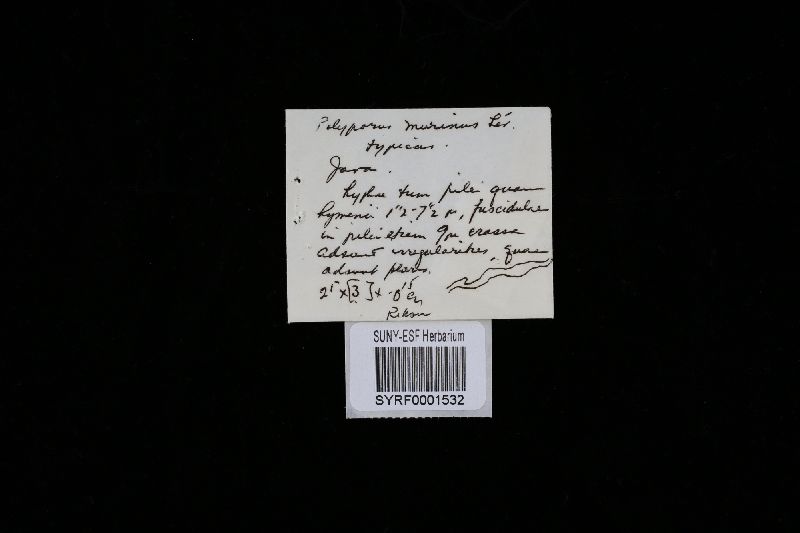 Polyporus murinus Lév.
typicus.
Java.
hyphae tum pilei quam
hymenii 1"2-7"2 μ, fuscidulae
in pilei 9μ crassae
adsunt irregularites, quae
adsunt
2⁵ × [3] × 0¹⁵
SUNY-ESF Herbarium
SYRF0001532